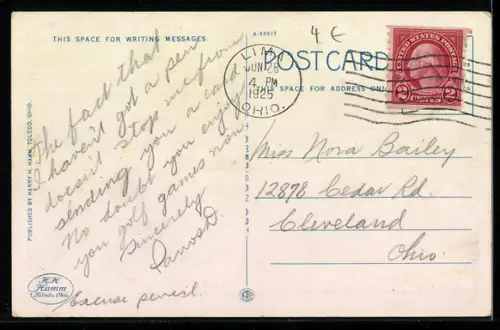 THIS SPACE FOR WRITING MESSAGES.
A-98617
4 E
POSTCARD
THIS SPACE FOR ADDRESS ONLY
LIMA
JUN 28
4 PM
1925
OHIO.
UNITED STATES POSTAGE
2 2
The fact that
I haven't got a pen
doesn't stop me from
sending you a card
No doubt you enjoy
you golf games now.
Sincerely
Excuse pencil.
Miss Nora Bailey
12878 Cedar Rd.
Cleveland
Ohio.
PUBLISHED BY HARRY H. HAMM, TOLEDO, OHIO.
H.H.
Hamm
Toledo, Ohio